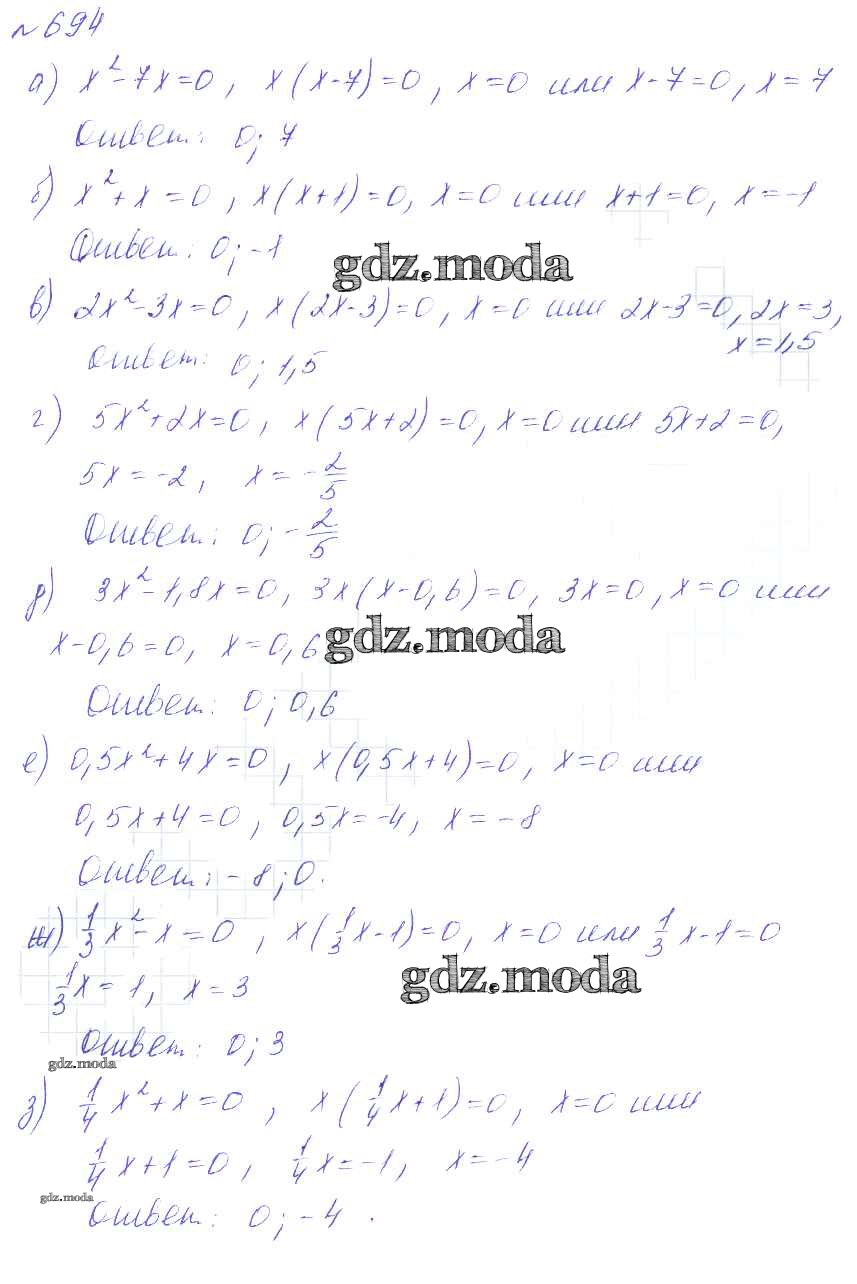 №694
а) x²-7x=0, x(x-7)=0, x=0 или x-7=0, x=7
Ответ: 0; 7
б) x²+x=0, x(x+1)=0, x=0 или x+1=0, x=-1
Ответ: 0; -1
gdz.moda
в) 2x²-3x=0, x(2x-3)=0, x=0 или 2x-3=0, 2x=3,
x=1,5
Ответ: 0; 1,5
г) 5x²+2x=0, x(5x+2)=0, x=0 или 5x+2=0,
5x=-2, x=-2/5
Ответ: 0; -2/5
д) 3x²-1,8x=0, 3x(x-0,6)=0, 3x=0, x=0 или
x-0,6=0, x=0,6
gdz.moda
Ответ: 0; 0,6
е) 0,5x²+4x=0, x(0,5x+4)=0, x=0 или
0,5x+4=0, 0,5x=-4, x=-8
Ответ: -8; 0.
ж) 1/3x²-x=0, x(1/3x-1)=0, x=0 или 1/3x-1=0
1/3x=1, x=3
gdz.moda
Ответ: 0; 3
gdz.moda
з) 1/4x²+x=0, x(1/4x+1)=0, x=0 или
1/4x+1=0, 1/4x=-1, x=-4
gdz.moda
Ответ: 0; -4.